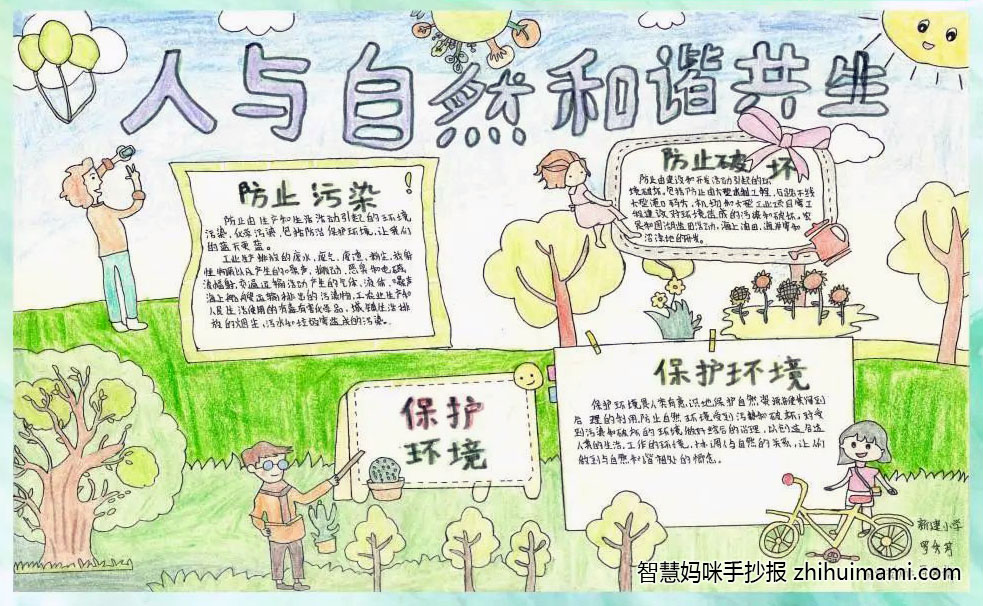 人与自然和谐共生
防止污染!
防止由生产和生活活动引起的环境
污染,化学污染,包括防治保护环境,让我们
的蓝天更蓝。
工业生产排放的废水,废气,废渣,粉尘,放射
性物质以及产生的噪声,振动,恶臭和电磁
波辐射,交通运输活动产生的气体,液体,噪声
海上船舶运输排出的污染物,工农业生产和
人民生活使用的有毒有害化学品,城镇生活排
放的烟尘,污水和垃圾等造成的污染。
防止破坏
防止由建设和开发活动引起的环
境破坏。包括防止由大型水利工程,
大型港口码头,机场和大型工业项目等工
程建设对环境造成的污染和破坏,农
垦和围湖造田活动,海上油田,
沼泽地的开发。
保护
环境
保护环境
保护环境是人类有意识地保护自然资源并使其得到
合理的利用,防止自然环境受到污染和破坏;对受
到污染和破坏的环境做好综合的治理,以创造合适
人类的生活、工作的环境,协调人与自然的关系,让人们
做到与自然和谐相处的概念。
新建小学
智慧妈咪手抄报 zhihuimami.com